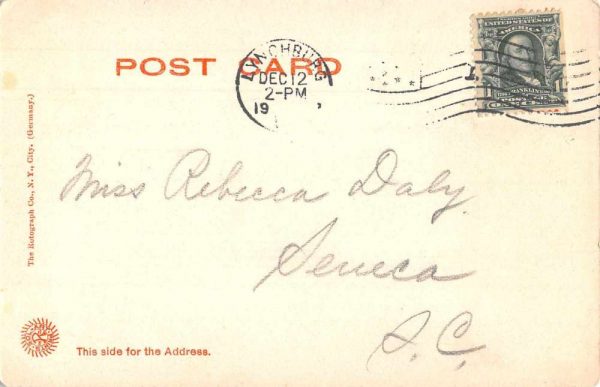 POST CARD
LYNCHBURG
DEC 12
2-PM
19
UNITED STATES OF
AMERICA
FRANKLIN
ONE
Miss Rebecca Daly
Seneca
S. C.
The Rotograph Co., N. Y., City. (Germany.)
This side for the Address.